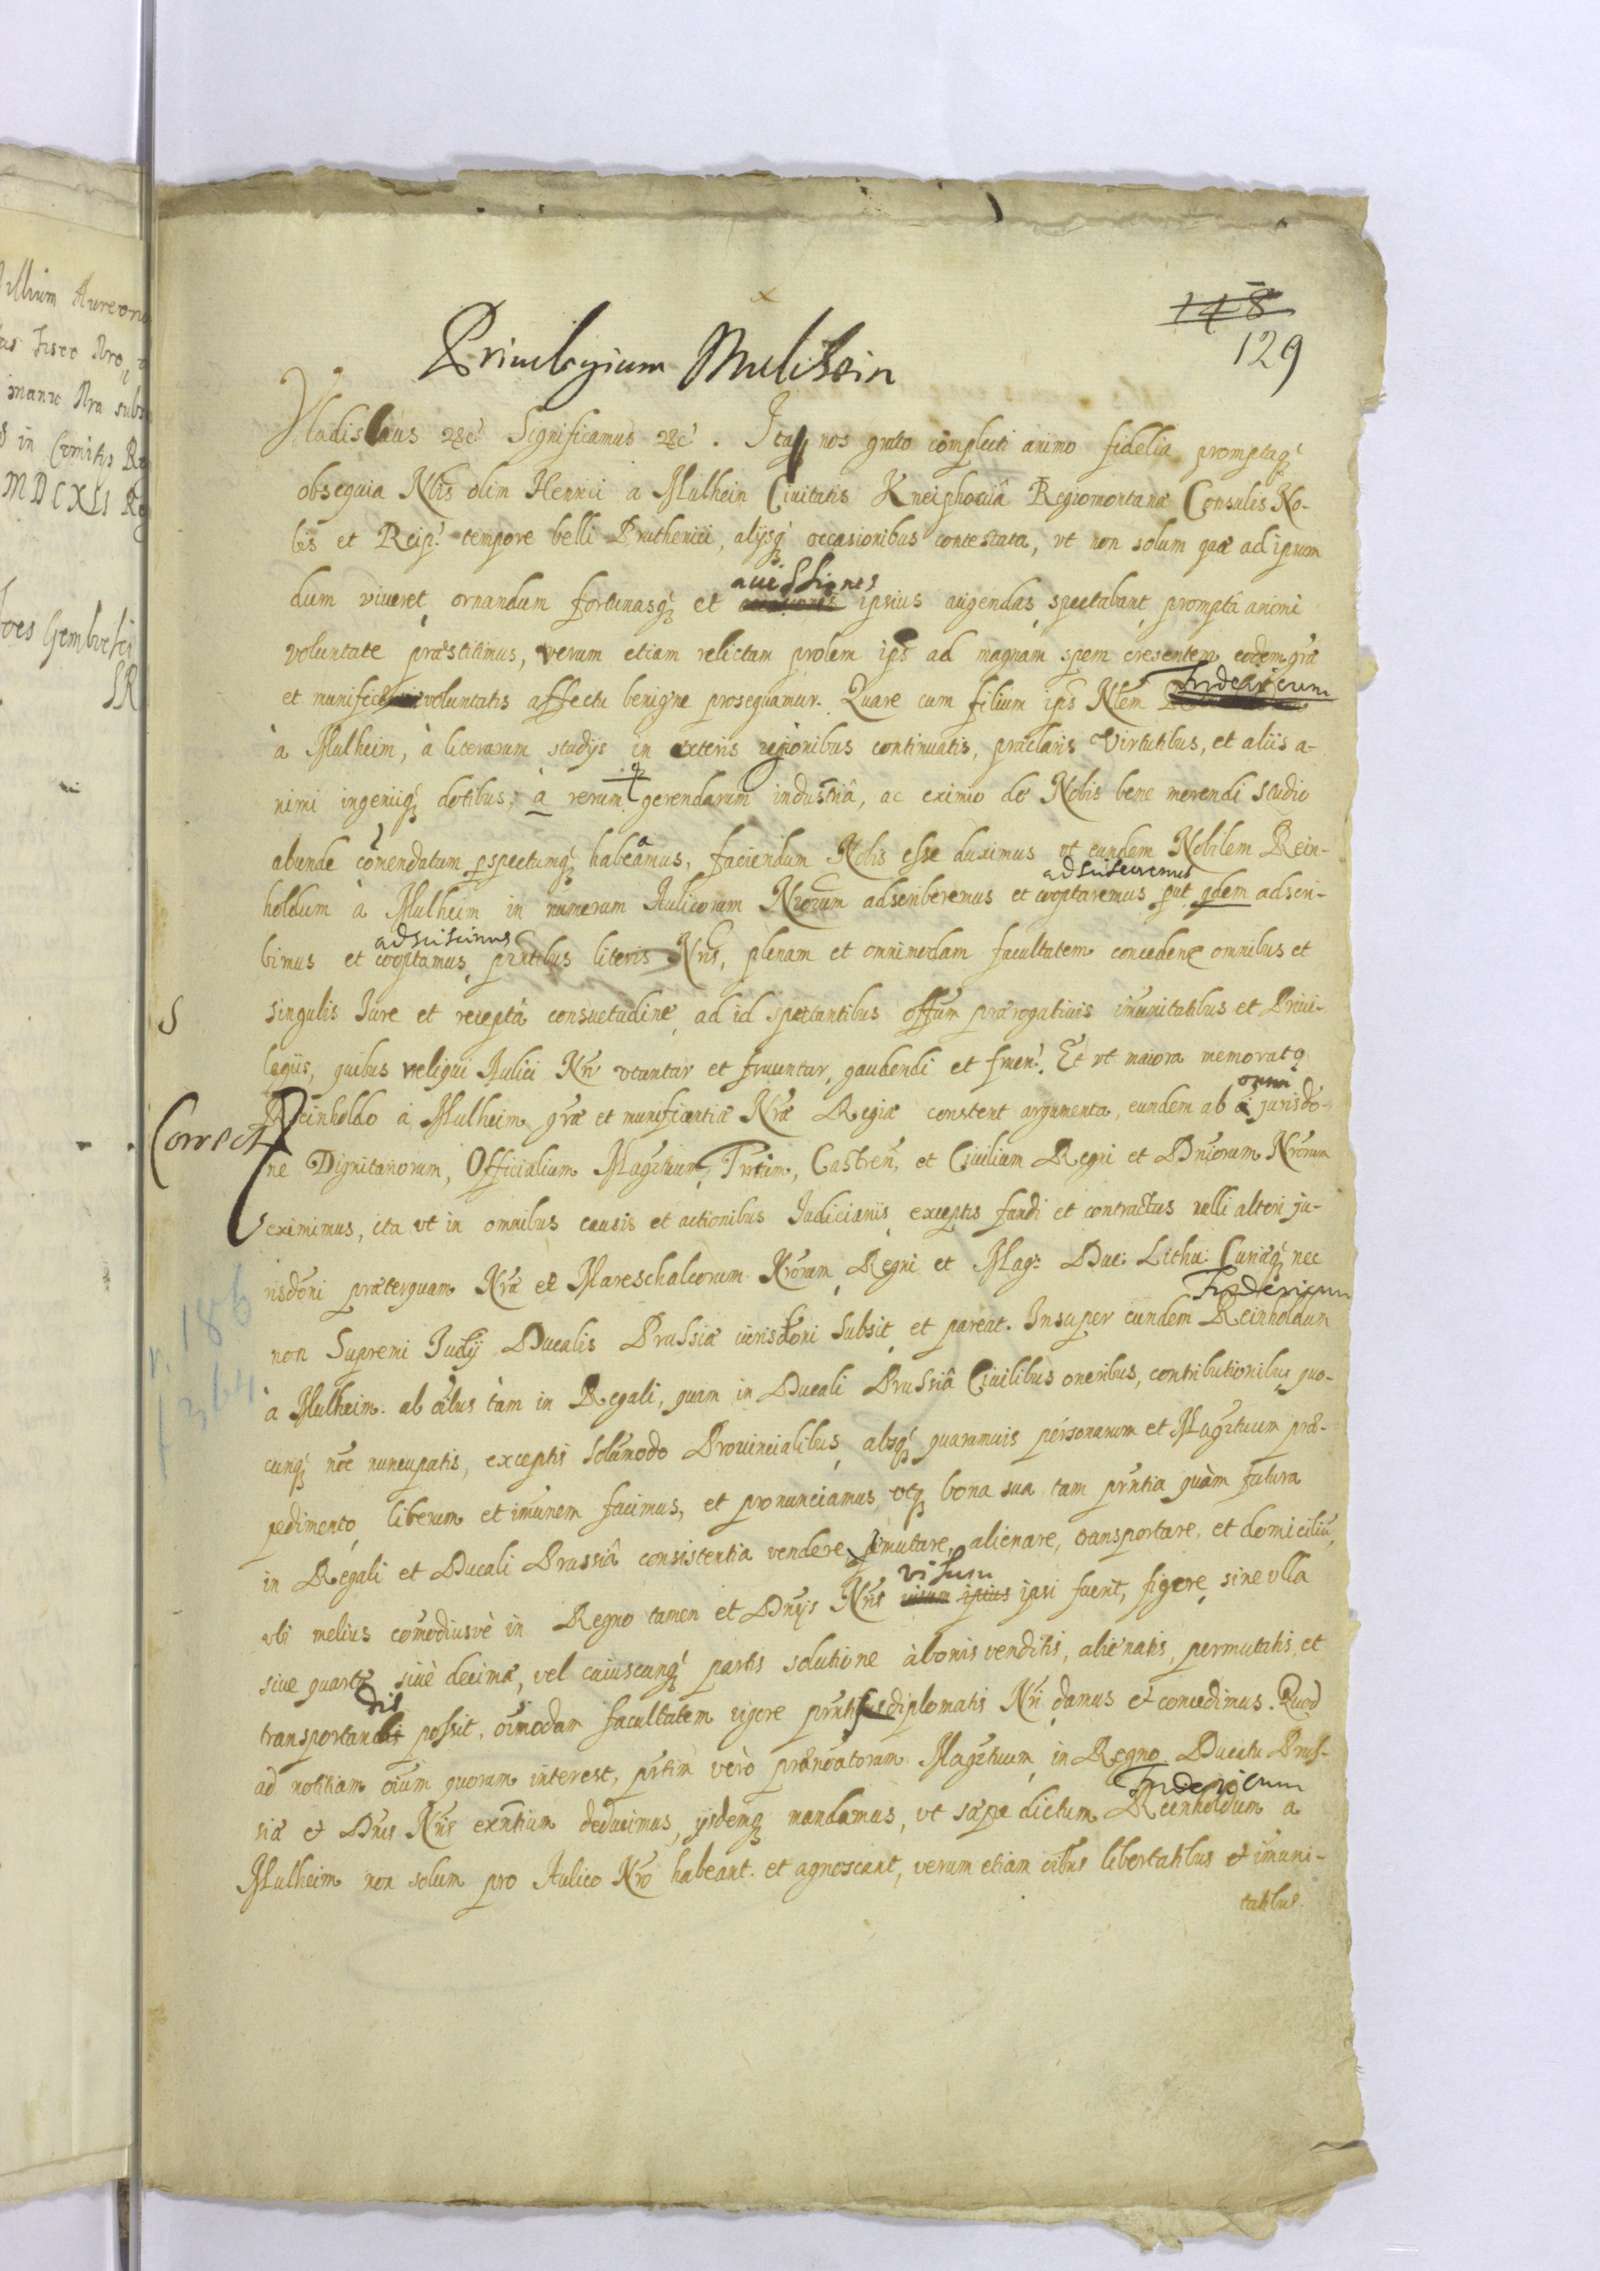 148
129
Priuilegium Mulhein
Vladislaus &c. Significamus &c. Itaq nos grato complecti animo fidelia promptaq
obsequia Nbis olim Henrici a Mulhein Ciuitatis Kneiphouiâ Regiomontanæ Consulis No-
bis et Reip. tempore belli Pruthenici, alijsq occasionibus contestata, vt non solum quæ ad ipsum
auissiones
dum viueret, ornandum fortunasq et ipsius augendas, spectabant, promptâ animi
voluntate præstitimus, verum etiam relictam prolem ips ad magnam spem cresentem eodem græ
Fridericum
et munificæ voluntatis affectu benigne prosequamur. Quare cum filium ips Nlem
à Mulheim, à literarum studijs in exteris regionibus continuatis, præclaris Virtutibus, et aliis a-
nimi ingeniiq dotibus, à rerum gerendarum industriâ, ac eximio de Nobis bene merendi studio
abunde comendatum pspectumq habeamus, faciendum Nobis esse duximus vt eundem Nobilem Rein-
adscisceremus
holdum à Mulheim in numerum Aulicorum Nrorum adscriberemus et cooptaremus put qdem adscri-
adsciscimus
bimus et cooptamus, prntibus literis Nris, plenam et omnimodam facultatem concedene omnibus et
S
singulis Iure et receptâ consuetudine, ad id spectantibus offum prærogatiuis imunitatibus et Priui-
legiis, quibus reliqui Aulici Nri vtantur et fruuntur, gaudendi et fruen. Et vt maiora memorato
omni
Reinholdo à Mulheim græ et munificentiæ Nræ Regiæ constent argumenta, eundem ab jurisdo-
Correct
ne Dignitariorum, Officialium Magrtuum, Trrium, Castren, et Ciuilium Regni et Dniorum Nrorum
eximimus, ita vt in omnibus causis et actionibus Iudiciariis, exceptis fundi et contractus nulli alteri ju-
risdoni præterquam Nræ et Mareschalcorum Nrorum, Regni et Mag: Duc: Lithu: Curiæq nec
Fridericum
non Supremi Iudij Ducalis Prussiæ iurisdoni subsit, et pareat. Insuper eundem Reinholdum
à Mulheim ab oibus tàm in Regali, quam in Ducali Prussiâ Ciuilibus oneribus, contributionibus quo-
cunq noe nuncupatis, exceptis solumodo Prouincialibus, absq quaramuis personarum et Magrtuum præ-
pedimento, liberum et imunem facimus, et pronunciamus, vtq bona sua tam prntia quàm futura
in Regali et Ducali Prussiâ consistentia vendere, pmutare, alienare, transportare, et domicilium,
visum
vbi melius comodiusvè in Regno tamen et Dnijs Nris ipsi fuerit, figere, sine vlla
siue quartæ siuè decimæ, vel cuiuscunq partis solutione à bonis venditis, alienatis, permutatis, et
dis
transportandi possit, oimodam facultatem vigore prntis diplomatis Nri damus et concedimus. Quod
ad notitiam oium quorum interest, prtim verò prænoatorum Magrtuum, in Regno Ducatu Prus-
Fridericum
siæ et Dnis Nris exntium deducimus, ijsdemq mandamus, vt sæpe dictum Reinholdum a
Mulheim non solum pro Aulico Nro habeant et agnoscant, verum etiam oibus libertatibus et imuni-
tatibus